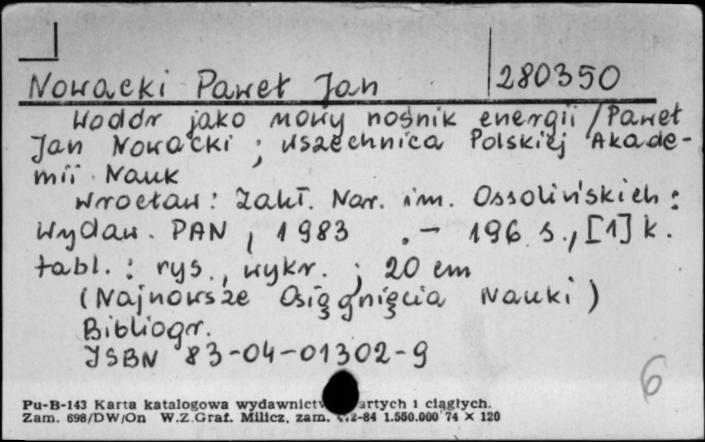 Nowacki Paweł Jan 280350
Wodór jako nowy nośnik energii / Paweł
Jan Nowacki ; Wszechnica Polskiej Akade-
mii Nauk
Wrocław : Zakł. Nar. im. Ossolińskich :
Wydaw. PAN , 1983 . - 196 s., [1] k.
tabl. : rys., wykr. ; 20 cm
(Najnowsze Osiągnięcia Nauki)
Bibliogr.
ISBN 83-04-01302-9
6
Pu-B-143 Karta katalogowa wydawnictw artych i ciągłych.
Zam. 698/DW/On W.Z.Graf. Milicz, zam. 2-84 1.550.000 74 × 120